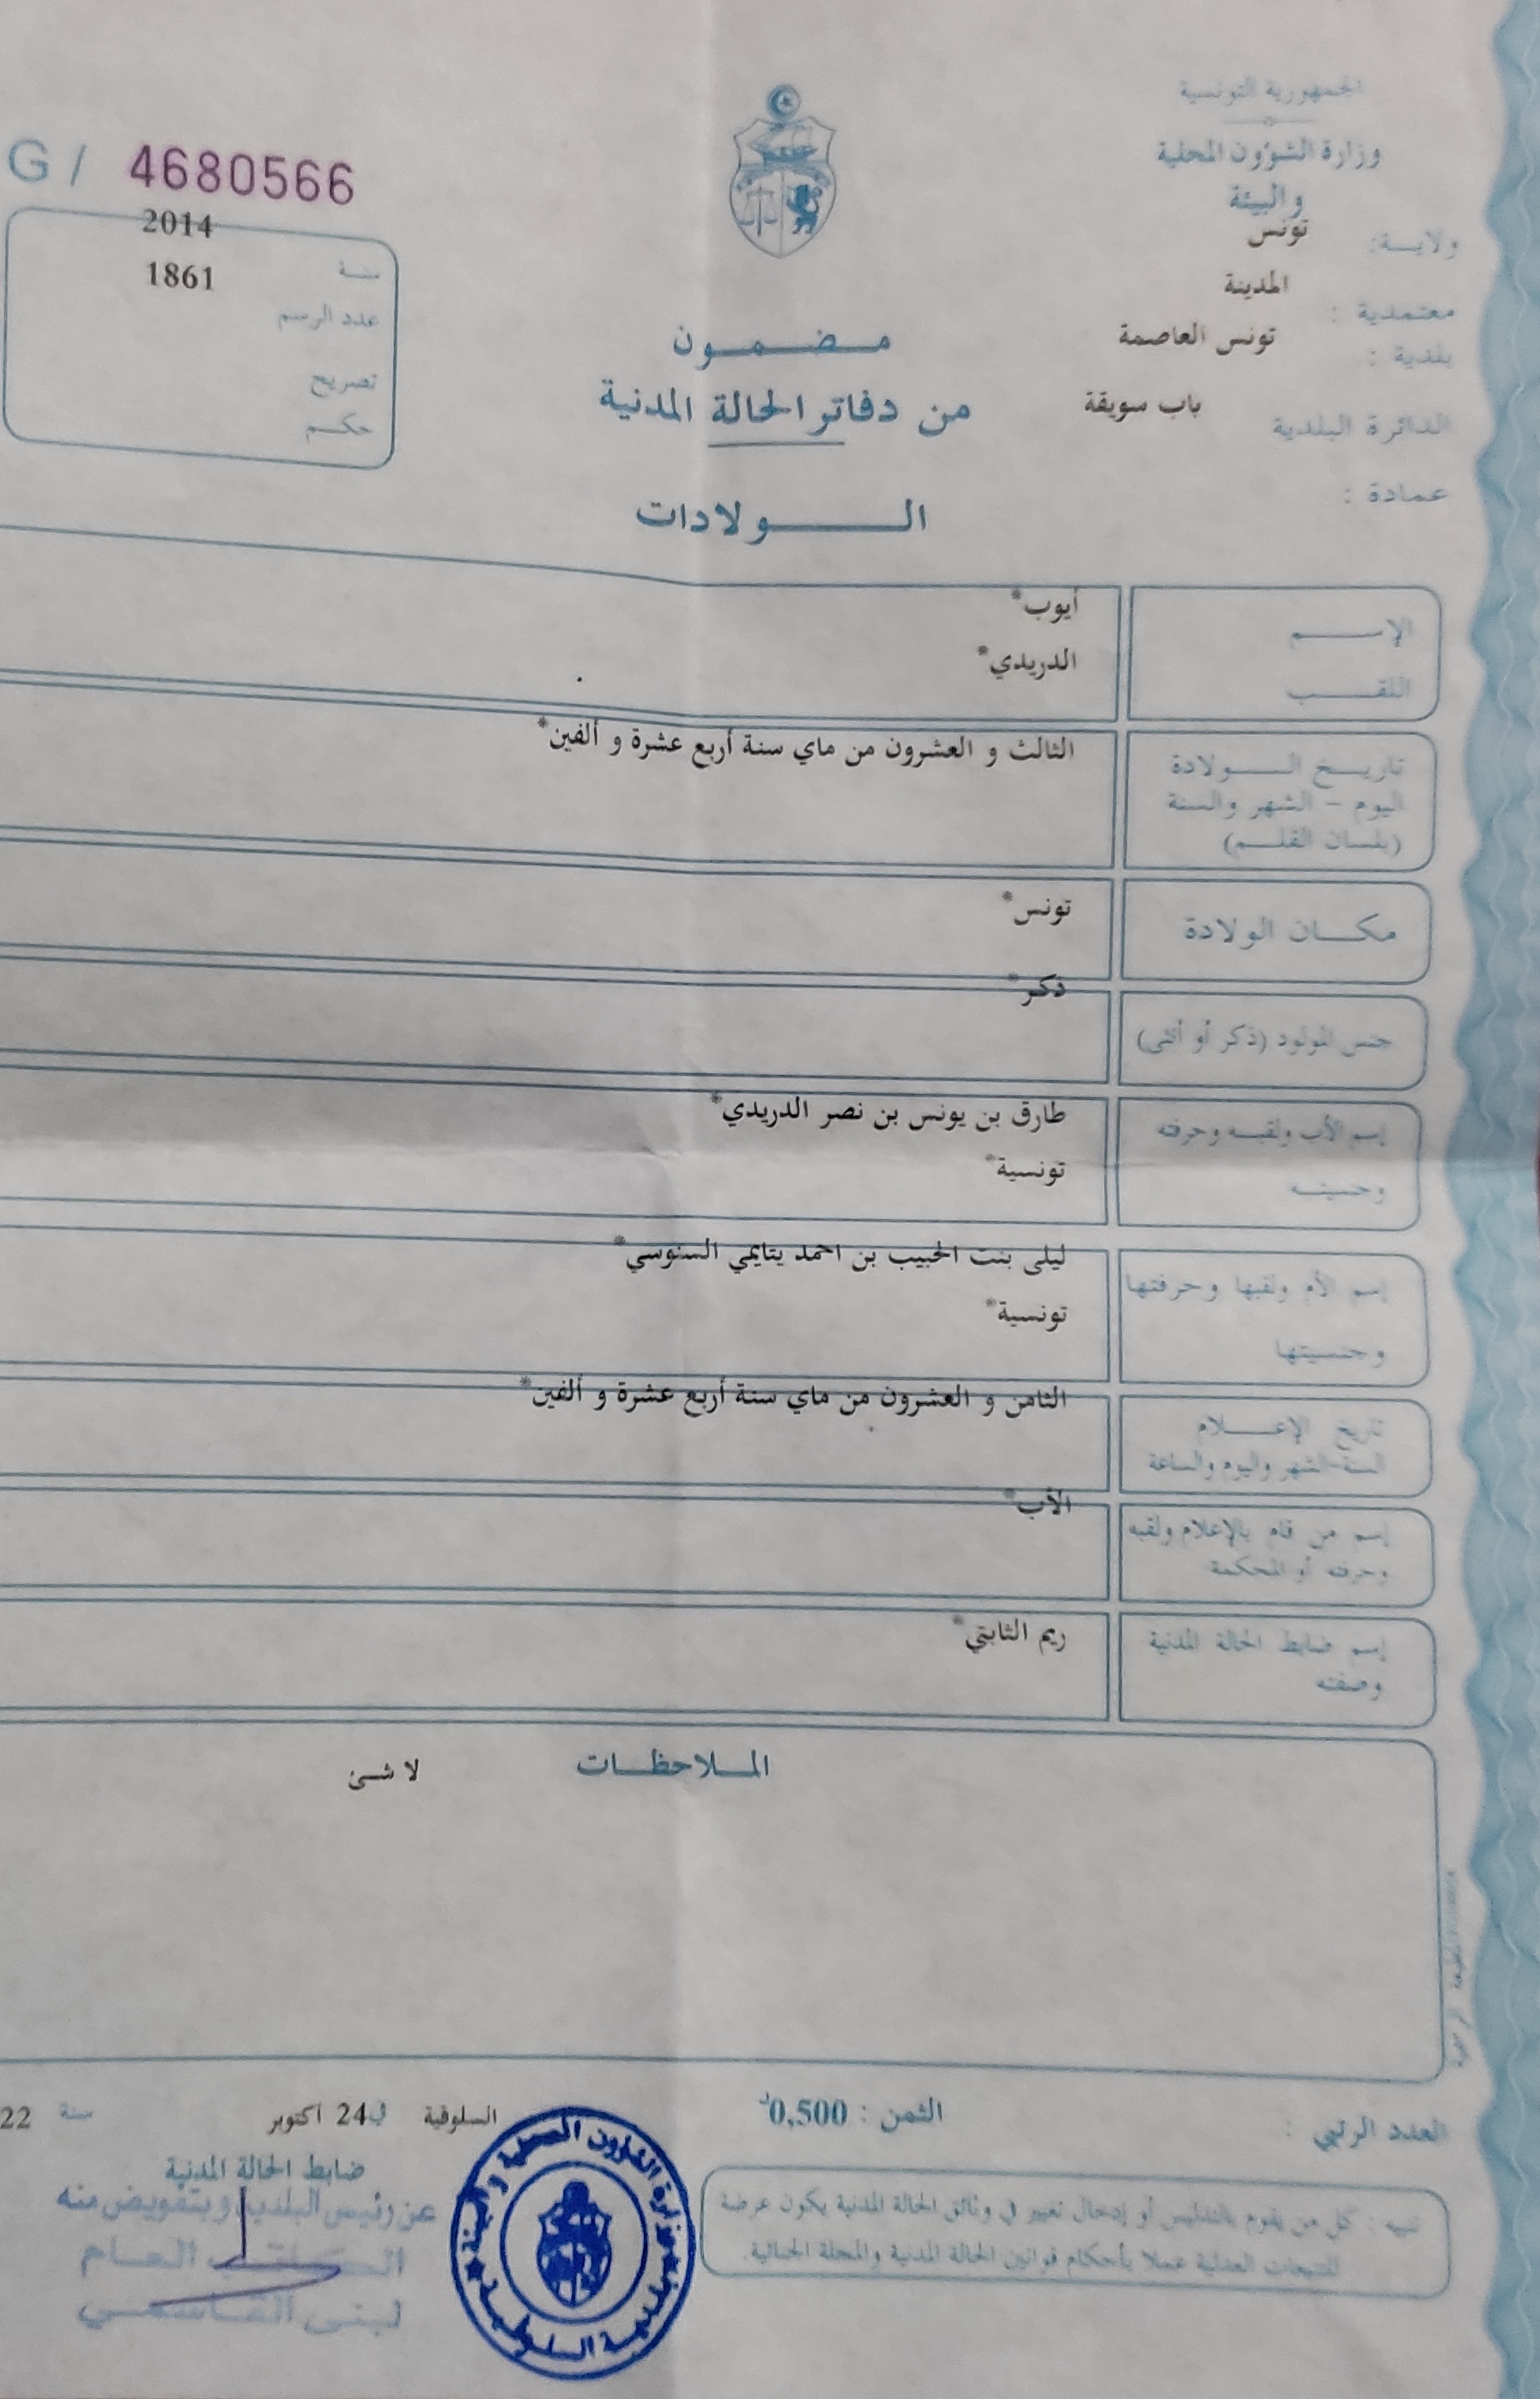 الجمهورية التونسية
وزارة الشؤون المحلية
والبيئة
ولايـة: تونس
معتمدية : المدينة
بلدية : تونس العاصمة
الدائرة البلدية باب سويقة
عمادة :
G / 4680566
سنـة 2014
عدد الرسم 1861
تصريح
حكـم
مـضـمـون
من دفاتر الحالة المدنية
الـولادات
الإسـم أيوب*
اللقـب الدريدي*
تاريـخ الـولادة
اليوم - الشهر والسنة
(بلسان القلـم)
الثالث و العشرون من ماي سنة أربع عشرة و ألفين*
مكـان الولادة تونس*
جنس المولود (ذكر أو أنثى) ذكر*
إسم الأب ولقبـه وحرفته طارق بن يونس بن نصر الدريدي*
وجنسيتـه تونسية*
إسم الأم ولقبها وحرفتها ليلى بنت الحبيب بن احمد يتايمي السنوسي*
وجنسيتها تونسية*
تاريخ الإعـلام
السنة-الشهر واليوم والساعة
الثامن و العشرون من ماي سنة أربع عشرة و ألفين*
إسم من قام بالإعلام ولقبه
وحرفته أو المحكمة
الأب*
إسم ضابط الحالة المدنية
وصفته
ريم الثابتي*
المـلاحظـات لا شئ
العدد الرتبي :
الثمن : 0,500د
السلوقية في 24 اكتوبر سنة 22
ضابط الحالة المدنية
عن رئيس البلدية و بتفويض منه
العـام
لبنى القـاسمـي
وزارة الشؤون المحلية و البيئة
بلدية السلوقية
تنبيه : كل من يقوم بالتدليس أو إدخال تغيير في وثائق الحالة المدنية يكون عرضة
للتتبعات العدلية عملا بأحكام قوانين الحالة المدنية والمجلة الجنائية.